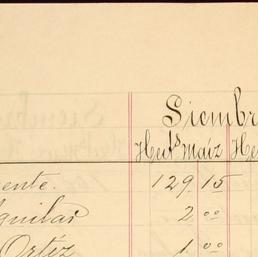 Siembr
Hect.s Maíz He
ente. 129.15
guilar 2 00
Ortíz 1. 00